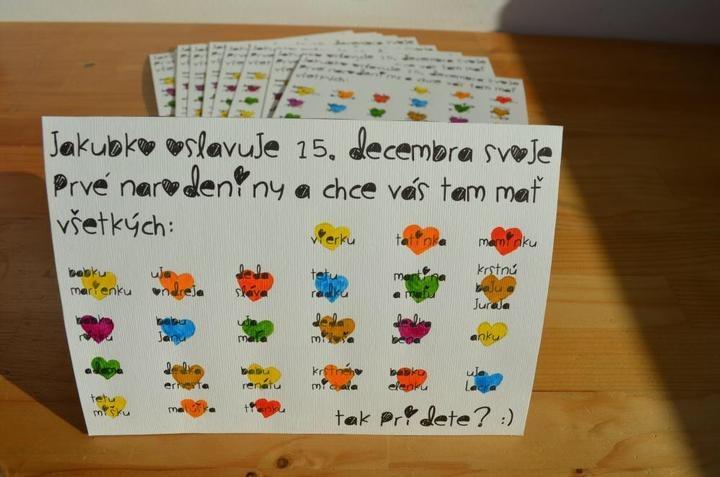 Jakubko oslavuje 15. decembra svoje
prvé narodeniny a chce vás tam mať
všetkých:
vierku tatinka maminku
babku marienku
uja ondreja
deda sláva
tetu radku
martina a maťu
krstnú baju a Juraja
babku
babu Janu
uja maťa
deda miloša
dedka
anku
adama
dedka ernesta
babu renátu
krstného michala
babku elenku
uja Laca
tetu mišku
matúška
tianku
tak prídete? :)